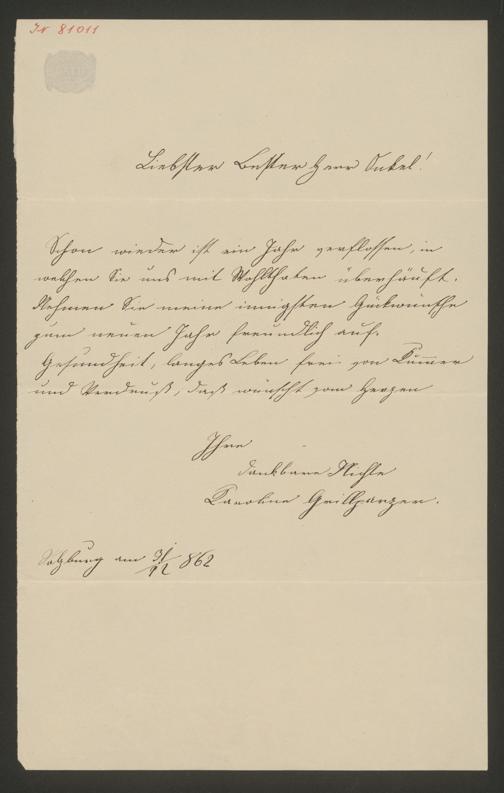 IN 81011
Liebster Bester Herr Onkel!
Schon wieder ist ein Jahr verflossen, in
welchen Sie uns mit Wohlthaten überhäuft.
Nehmen Sie meine innigsten Gückwünsche
zum neuen Jahr freundlich auf.
Gesundheit, langes Leben frei von Kummer
und Verdruß, daß wünscht vom Herzen
Ihre
dankbare Nichte
Karoline Grillparzer.
Salzburg am 31/12 862